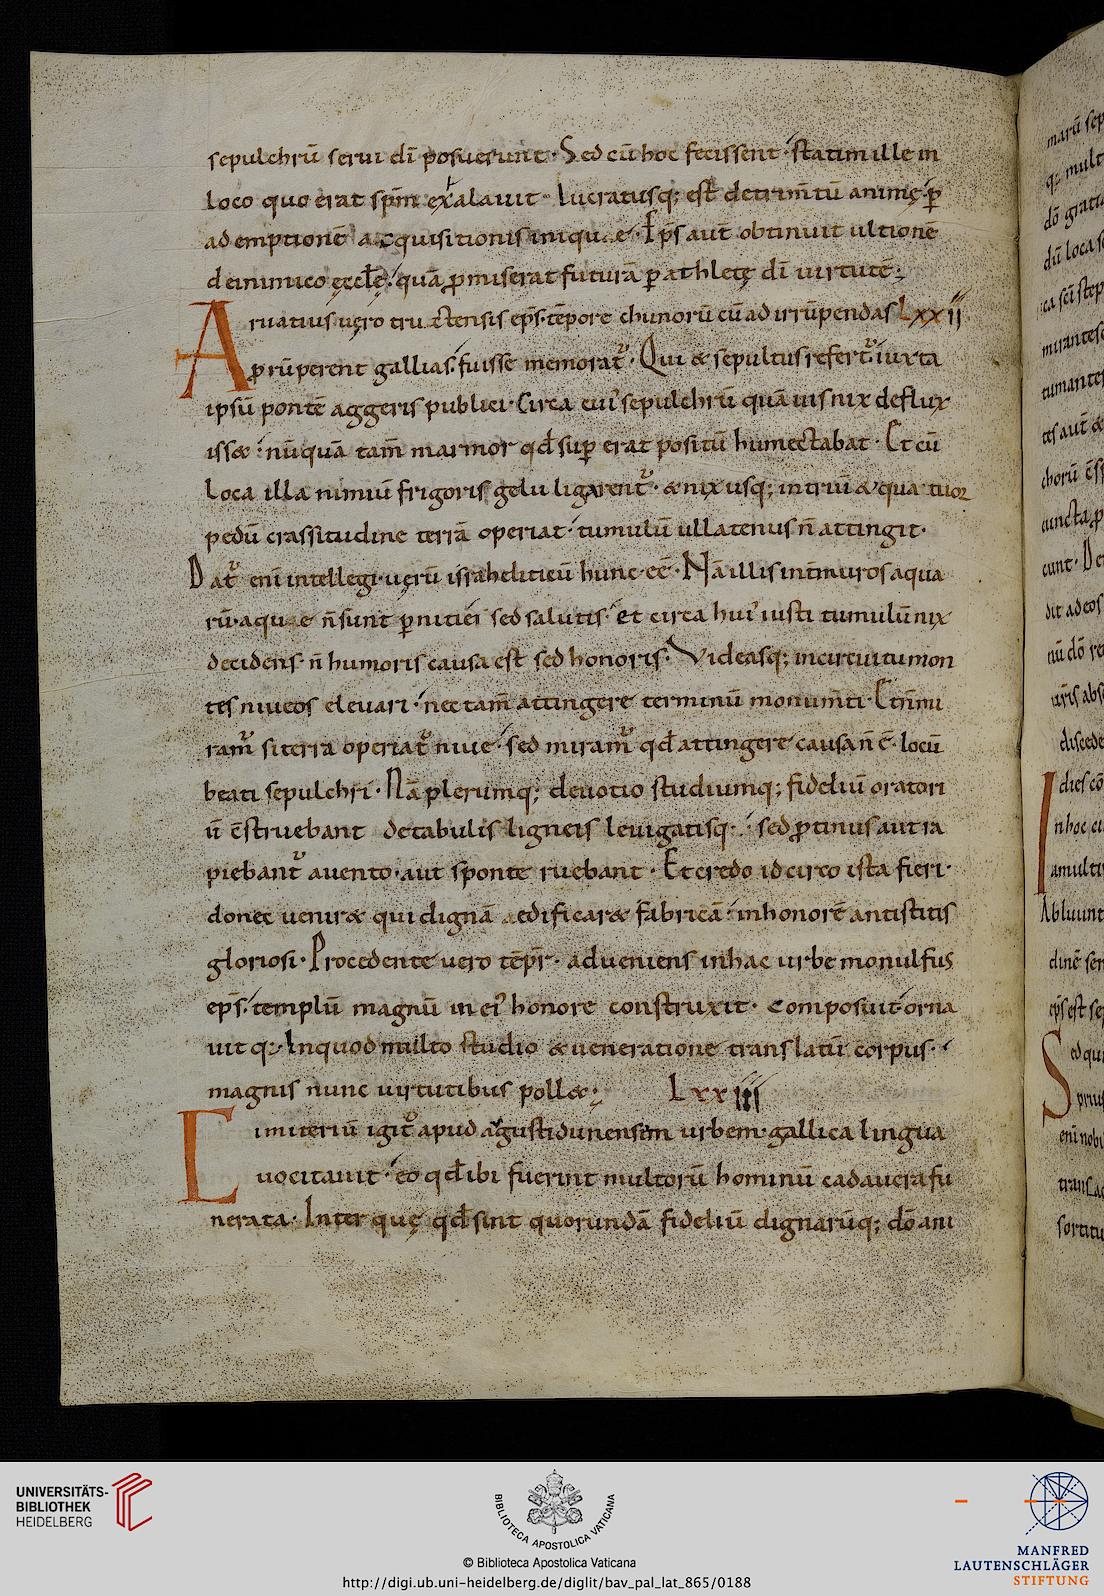 sepulchrū serui dī posuerunt· Sed cū hoc fecissent· statim ille in
loco quo erat sp̄m exalauit· Lucratusq; est detrim̄tū animę p̄
ad emptionē acquisitionis iniquae· Ep̄s aut̄ obtinuit ultionē
de inimico ęccl̄ę· quā p̄miserat futurā p athletę dī uirtutē·;
Aruatius uęro truiectensis ep̄s· tēpore chunorū cū ad irrūpendas LXXII
prūperent gallias· fuisse memorat᷑· Qui & sepultus refert᷑ iuxta
ipsū pontē aggeris publici· Circa cui᷒ sepulchrū quāuis nix deflux
iss&· nūquā tam̄ marmor qd̄ sup erat positū humectabat· Et cū
loca illa nimiū frigoris gelu ligarent᷑· & nix usq; in triū & quatuor
pedū crassitudine terrā operiat· tumulū ullatenus n̄ attingit·
Dat᷑ enī intellegi· uęrū israheliticū hunc eē· Nā illis int̄ muros aqua
rū· aquae n̄ sunt pniciei sed salutis· et circa hui᷒ iusti tumulū nix
decidens· n̄ humoris causa est sed honoris· Videasq; in circuitu mon
tes niueos eleuari· nec tam̄ attingere terminū monum̄ti· Et n̄ mi
ram᷑ si terra operiat᷑ niue· sed miram᷑ qd̄ attingere causa n̄ ē· locū
beati sepulchri· Nā plerumq; deuotio studiumq; fideliū oratori
ū c̄struebant de tabulis ligneis leuigatisq·· sed p̄tinus aut ra
piebant᷑ a uento· aut sponte ruebant· Et credo idcirco ista fieri·
donec uenir& qui dignā aedificar& fabricā· in honorē antistitis
gloriosi· Procedente uero tēp̄r· adueniens in hac urbe monulfus
ep̄s· templū magnū in ei᷒ honore construxit· composuit· orna
uitq·; In quod multo studio & ueneratione translatū corpus·
magnis nunc uirtutibus poll&·; LXXIII
Cimiteriū igit᷑ apud agustidunensem urbem· gallica lingua
uocitauit· eo qd̄ ibi fuerint multorū hominū cadauera fu
nerata· Inter quę qd̄ sint quorundā fideliū dignarūq; dō ani
UNIVERSITÄTS-
BIBLIOTHEK
HEIDELBERG
BIBLIOTECA APOSTOLICA VATICANA
© Biblioteca Apostolica Vaticana
http://digi.ub.uni-heidelberg.de/diglit/bav_pal_lat_865/0188
MANFRED
LAUTENSCHLÄGER
STIFTUNG